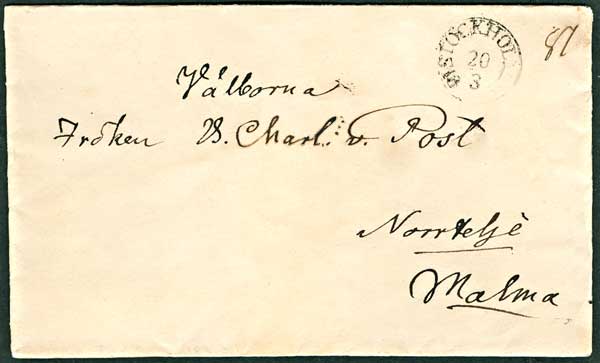 STOCKHOLM
20
3
87
Välborna
Fröken B. Charl. v. Post
Norrtelje
Malma